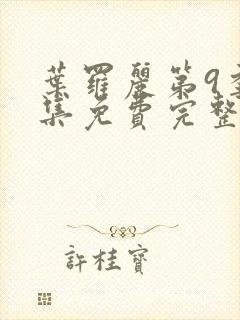 葉羅麗第9季
集免費完整
許桂寶